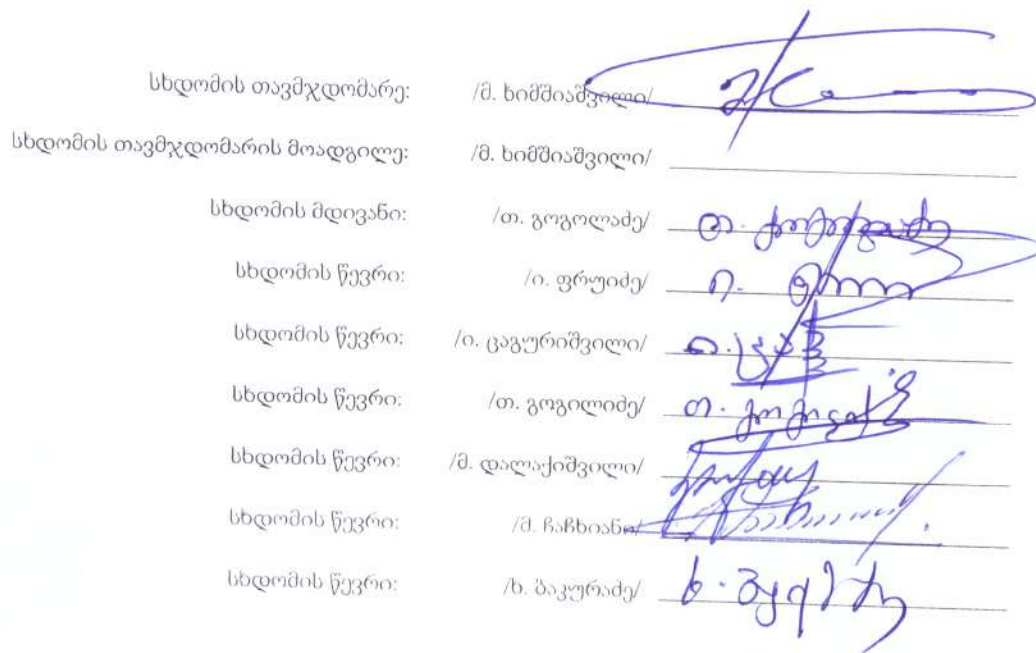 სხდომის თავმჯდომარე: /მ. ხიმშიაშვილი/
სხდომის თავმჯდომარის მოადგილე: /მ. ხიმშიაშვილი/
სხდომის მდივანი: /თ. გოგოლაძე/ თ. გოგოლაძე
სხდომის წევრი: /ი. ფრუიძე/ ი.
სხდომის წევრი: /ი. ცაგურიშვილი/
სხდომის წევრი: /თ. გოგილიძე/ თ.
სხდომის წევრი: /მ. დალაქიშვილი/
სხდომის წევრი: /მ. ჩაჩხიანი/
სხდომის წევრი: /ხ. ბაკურაძე/ ხ.